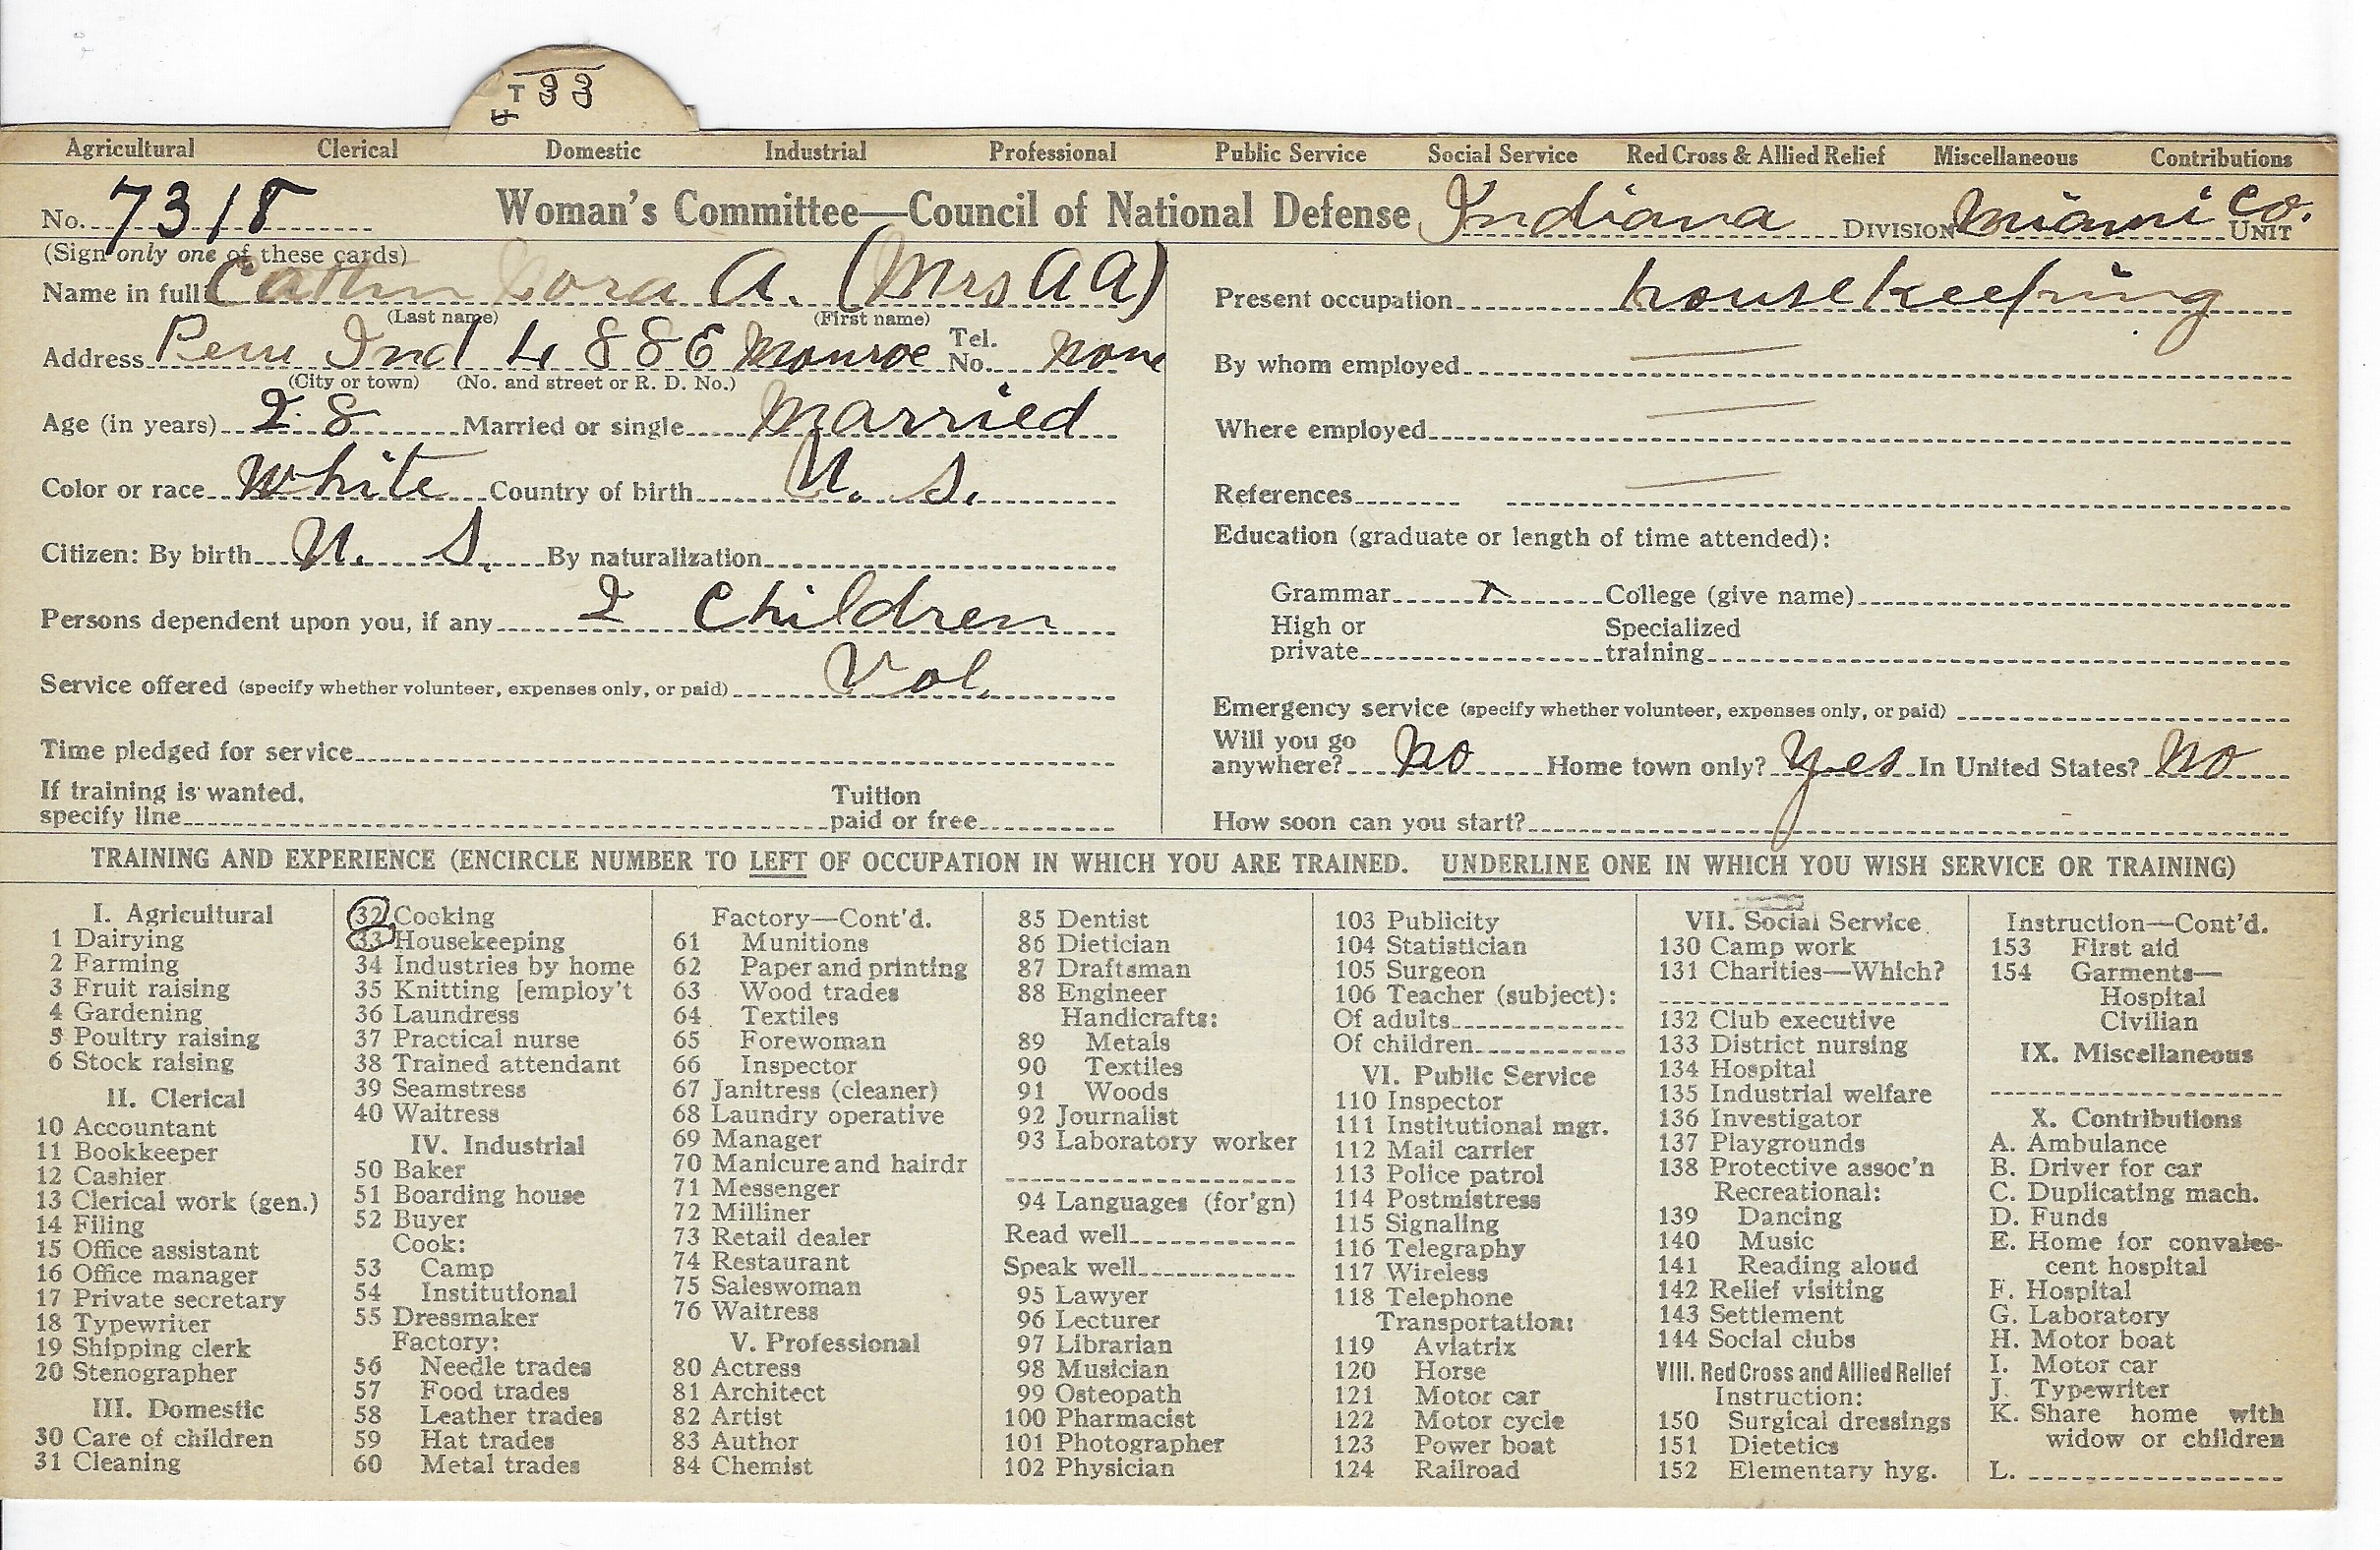 T 33
Agricultural Clerical Domestic Industrial Professional Public Service Social Service Red Cross & Allied Relief Miscellaneous Contributions
No. 7318 Woman's Committee—Council of National Defense Indiana DIVISION Miami Co. UNIT
(Sign only one of these cards)
Name in full Cora A. (Mrs A A)
(Last name) (First name)
Address Peru Ind 488 E Monroe Tel. No. none
(City or town) (No. and street or R. D. No.)
Age (in years) 28 Married or single Married
Color or race White Country of birth U. S.
Citizen: By birth U. S. By naturalization
Persons dependent upon you, if any 2 Children
Service offered (specify whether volunteer, expenses only, or paid) Vol.
Time pledged for service
If training is wanted,
specify line Tuition paid or free
Present occupation housekeeping
By whom employed
Where employed
References
Education (graduate or length of time attended):
Grammar College (give name)
High or private Specialized training
Emergency service (specify whether volunteer, expenses only, or paid)
Will you go anywhere? No Home town only? Yes In United States? No
How soon can you start?
TRAINING AND EXPERIENCE (ENCIRCLE NUMBER TO LEFT OF OCCUPATION IN WHICH YOU ARE TRAINED. UNDERLINE ONE IN WHICH YOU WISH SERVICE OR TRAINING)
I. Agricultural
1 Dairying
2 Farming
3 Fruit raising
4 Gardening
5 Poultry raising
6 Stock raising
II. Clerical
10 Accountant
11 Bookkeeper
12 Cashier
13 Clerical work (gen.)
14 Filing
15 Office assistant
16 Office manager
17 Private secretary
18 Typewriter
19 Shipping clerk
20 Stenographer
III. Domestic
30 Care of children
31 Cleaning
32 Cooking
33 Housekeeping
34 Industries by home
35 Knitting [employ't
36 Laundress
37 Practical nurse
38 Trained attendant
39 Seamstress
40 Waitress
IV. Industrial
50 Baker
51 Boarding house
52 Buyer
Cook:
53 Camp
54 Institutional
55 Dressmaker
Factory:
56 Needle trades
57 Food trades
58 Leather trades
59 Hat trades
60 Metal trades
Factory—Cont'd.
61 Munitions
62 Paper and printing
63 Wood trades
64 Textiles
65 Forewoman
66 Inspector
67 Janitress (cleaner)
68 Laundry operative
69 Manager
70 Manicure and hairdr
71 Messenger
72 Milliner
73 Retail dealer
74 Restaurant
75 Saleswoman
76 Waitress
V. Professional
80 Actress
81 Architect
82 Artist
83 Author
84 Chemist
85 Dentist
86 Dietician
87 Draftsman
88 Engineer
Handicrafts:
89 Metals
90 Textiles
91 Woods
92 Journalist
93 Laboratory worker
94 Languages (for'gn)
Read well
Speak well
95 Lawyer
96 Lecturer
97 Librarian
98 Musician
99 Osteopath
100 Pharmacist
101 Photographer
102 Physician
103 Publicity
104 Statistician
105 Surgeon
106 Teacher (subject):
Of adults
Of children
VI. Public Service
110 Inspector
111 Institutional mgr.
112 Mail carrier
113 Police patrol
114 Postmistress
115 Signaling
116 Telegraphy
117 Wireless
118 Telephone
Transportation:
119 Aviatrix
120 Horse
121 Motor car
122 Motor cycle
123 Power boat
124 Railroad
VII. Social Service
130 Camp work
131 Charities—Which?
132 Club executive
133 District nursing
134 Hospital
135 Industrial welfare
136 Investigator
137 Playgrounds
138 Protective assoc'n
Recreational:
139 Dancing
140 Music
141 Reading aloud
142 Relief visiting
143 Settlement
144 Social clubs
VIII. Red Cross and Allied Relief
Instruction:
150 Surgical dressings
151 Dietetics
152 Elementary hyg.
Instruction—Cont'd.
153 First aid
154 Garments—
Hospital
Civilian
IX. Miscellaneous
X. Contributions
A. Ambulance
B. Driver for car
C. Duplicating mach.
D. Funds
E. Home for convales-
cent hospital
F. Hospital
G. Laboratory
H. Motor boat
I. Motor car
J. Typewriter
K. Share home with
widow or children
L.